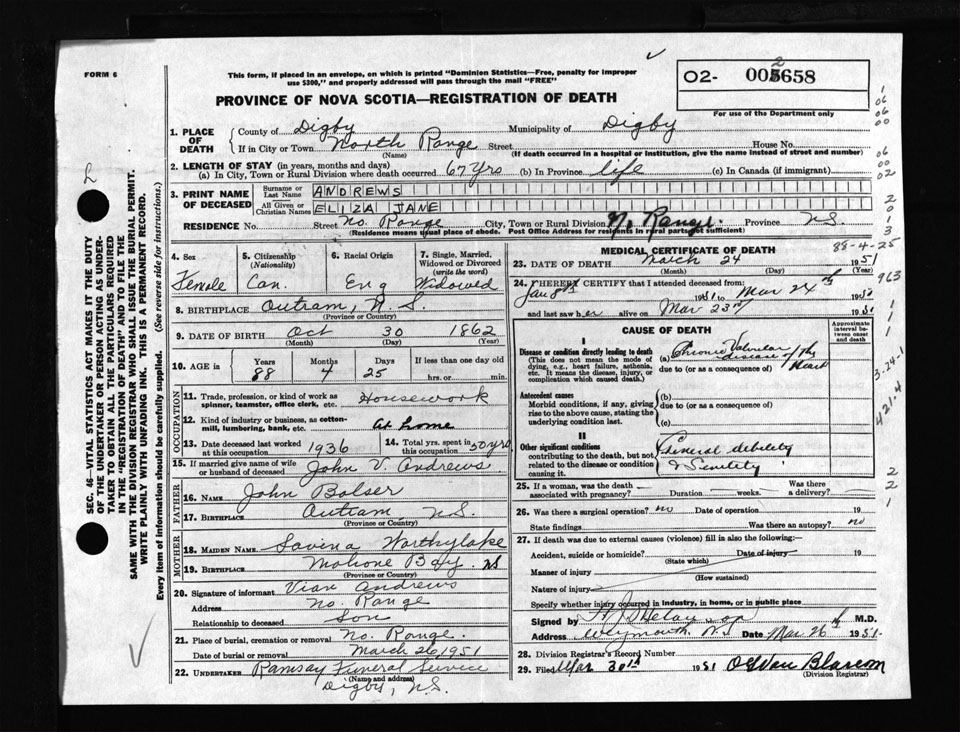 FORM 6
This form, if placed in an envelope, on which is printed "Dominion Statistics—Free, penalty for improper
use $300," and properly addressed will pass through the mail "FREE"
PROVINCE OF NOVA SCOTIA—REGISTRATION OF DEATH
O2- 005658
2
For use of the Department only
1. PLACE OF DEATH
County of Digby Municipality of Digby
If in City or Town North Range Street House No.
(Name) (If death occurred in a hospital or institution, give the name instead of street and number)
2. LENGTH OF STAY (in years, months and days)
(a) In City, Town or Rural Division where death occurred 67 yrs (b) In Province life (c) In Canada (if immigrant)
3. PRINT NAME OF DECEASED
Surname or Last Name ANDREWS
All Given or Christian Names ELIZA JANE
RESIDENCE No. Street No. Range City, Town or Rural Division N. Range. Province NS.
(Residence means usual place of abode. Post Office Address for residents in rural parts not sufficient)
4. Sex Female
5. Citizenship (Nationality) Can.
6. Racial Origin Eng
7. Single, Married, Widowed or Divorced (write the word) Widowed
8. BIRTHPLACE Outram, N.S.
(Province or Country)
9. DATE OF BIRTH Oct 30 1862
(Month) (Day) (Year)
10. AGE in Years 88 Months 4 Days 25 If less than one day old
hrs. or min.
OCCUPATION
11. Trade, profession, or kind of work as spinner, teamster, office clerk, etc. Housework
12. Kind of industry or business, as cotton-mill, lumbering, bank, etc. At home
13. Date deceased last worked at this occupation 1936
14. Total yrs. spent in this occupation 50 yrs
15. If married give name of wife or husband of deceased John V. Andrews.
FATHER
16. NAME John Bolser
17. BIRTHPLACE Outram, N.S.
(Province or Country)
MOTHER
18. MAIDEN NAME Savina Worthylake
19. BIRTHPLACE Mahone Bay. NS
(Province or Country)
20. Signature of informant Vian Andrews
Address No. Range
Relationship to deceased Son
21. Place of burial, cremation or removal No. Range.
Date of burial or removal March 26 1951
22. UNDERTAKER Ramsay Funeral Service
(Name and address)
Digby, N.S.
MEDICAL CERTIFICATE OF DEATH
88-4-25
23. DATE OF DEATH March 24 1951
(Month) (Day) (Year)
24. I HEREBY CERTIFY that I attended deceased from:
Jan 8th 1951 to Mar 24th 1951
and last saw her alive on Mar 23rd 1951
CAUSE OF DEATH
Approximate interval between onset and death
I
Disease or condition directly leading to death
(This does not mean the mode of dying, e.g., heart failure, asthenia, etc. It means the disease, injury, or complication which caused death.)
(a) Chronic Valvular disease of the heart
due to (or as a consequence of)
Antecedent causes
Morbid conditions, if any, giving rise to the above cause, stating the underlying condition last.
(b)
due to (or as a consequence of)
(c)
II
Other significant conditions contributing to the death, but not related to the disease or condition causing it.
General debility
& Senility
25. If a woman, was the death associated with pregnancy? Duration weeks. Was there a delivery?
26. Was there a surgical operation? no Date of operation 19
State findings Was there an autopsy? no
27. If death was due to external causes (violence) fill in also the following:—
Accident, suicide or homicide? Date of injury 19
(State which)
Manner of injury
(How sustained)
Nature of injury
Specify whether injury occurred in industry, in home, or in public place
Signed by M.D.
Address Weymouth N.S Date Mar 26th 1951.
28. Division Registrar's Record Number
29. Filed Mar 30th 1951
(Division Registrar)
SEC. 46—VITAL STATISTICS ACT MAKES IT THE DUTY
OF THE UNDERTAKER OR PERSON ACTING AS UNDER-
TAKER TO OBTAIN ALL THE PARTICULARS REQUIRED
IN THE "REGISTRATION OF DEATH" AND TO FILE THE
SAME WITH THE DIVISION REGISTRAR WHO SHALL ISSUE THE BURIAL PERMIT.
WRITE PLAINLY WITH UNFADING INK. THIS IS A PERMANENT RECORD.
Every item of information should be carefully supplied. (See reverse side for instructions.)
1
06
06
00
06
00
02
2
0
1
3
963
3-24-1
421.4
2
2
1